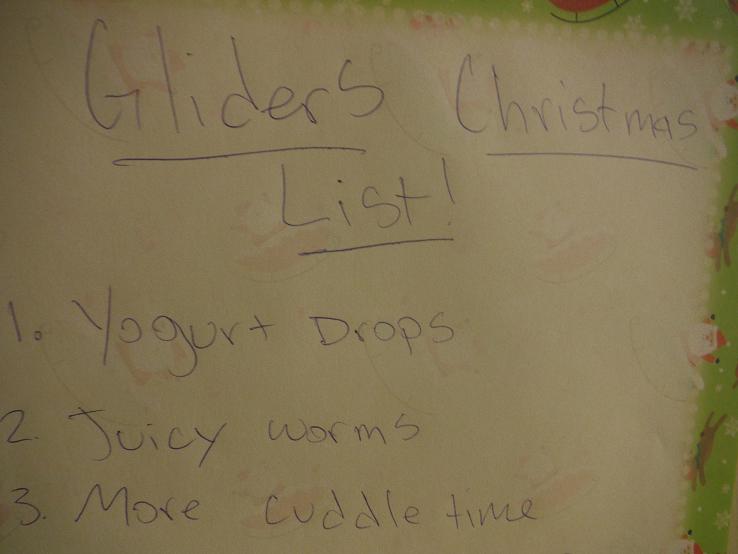 Gliders Christmas
List!
1. Yogurt Drops
2. Juicy worms
3. More cuddle time